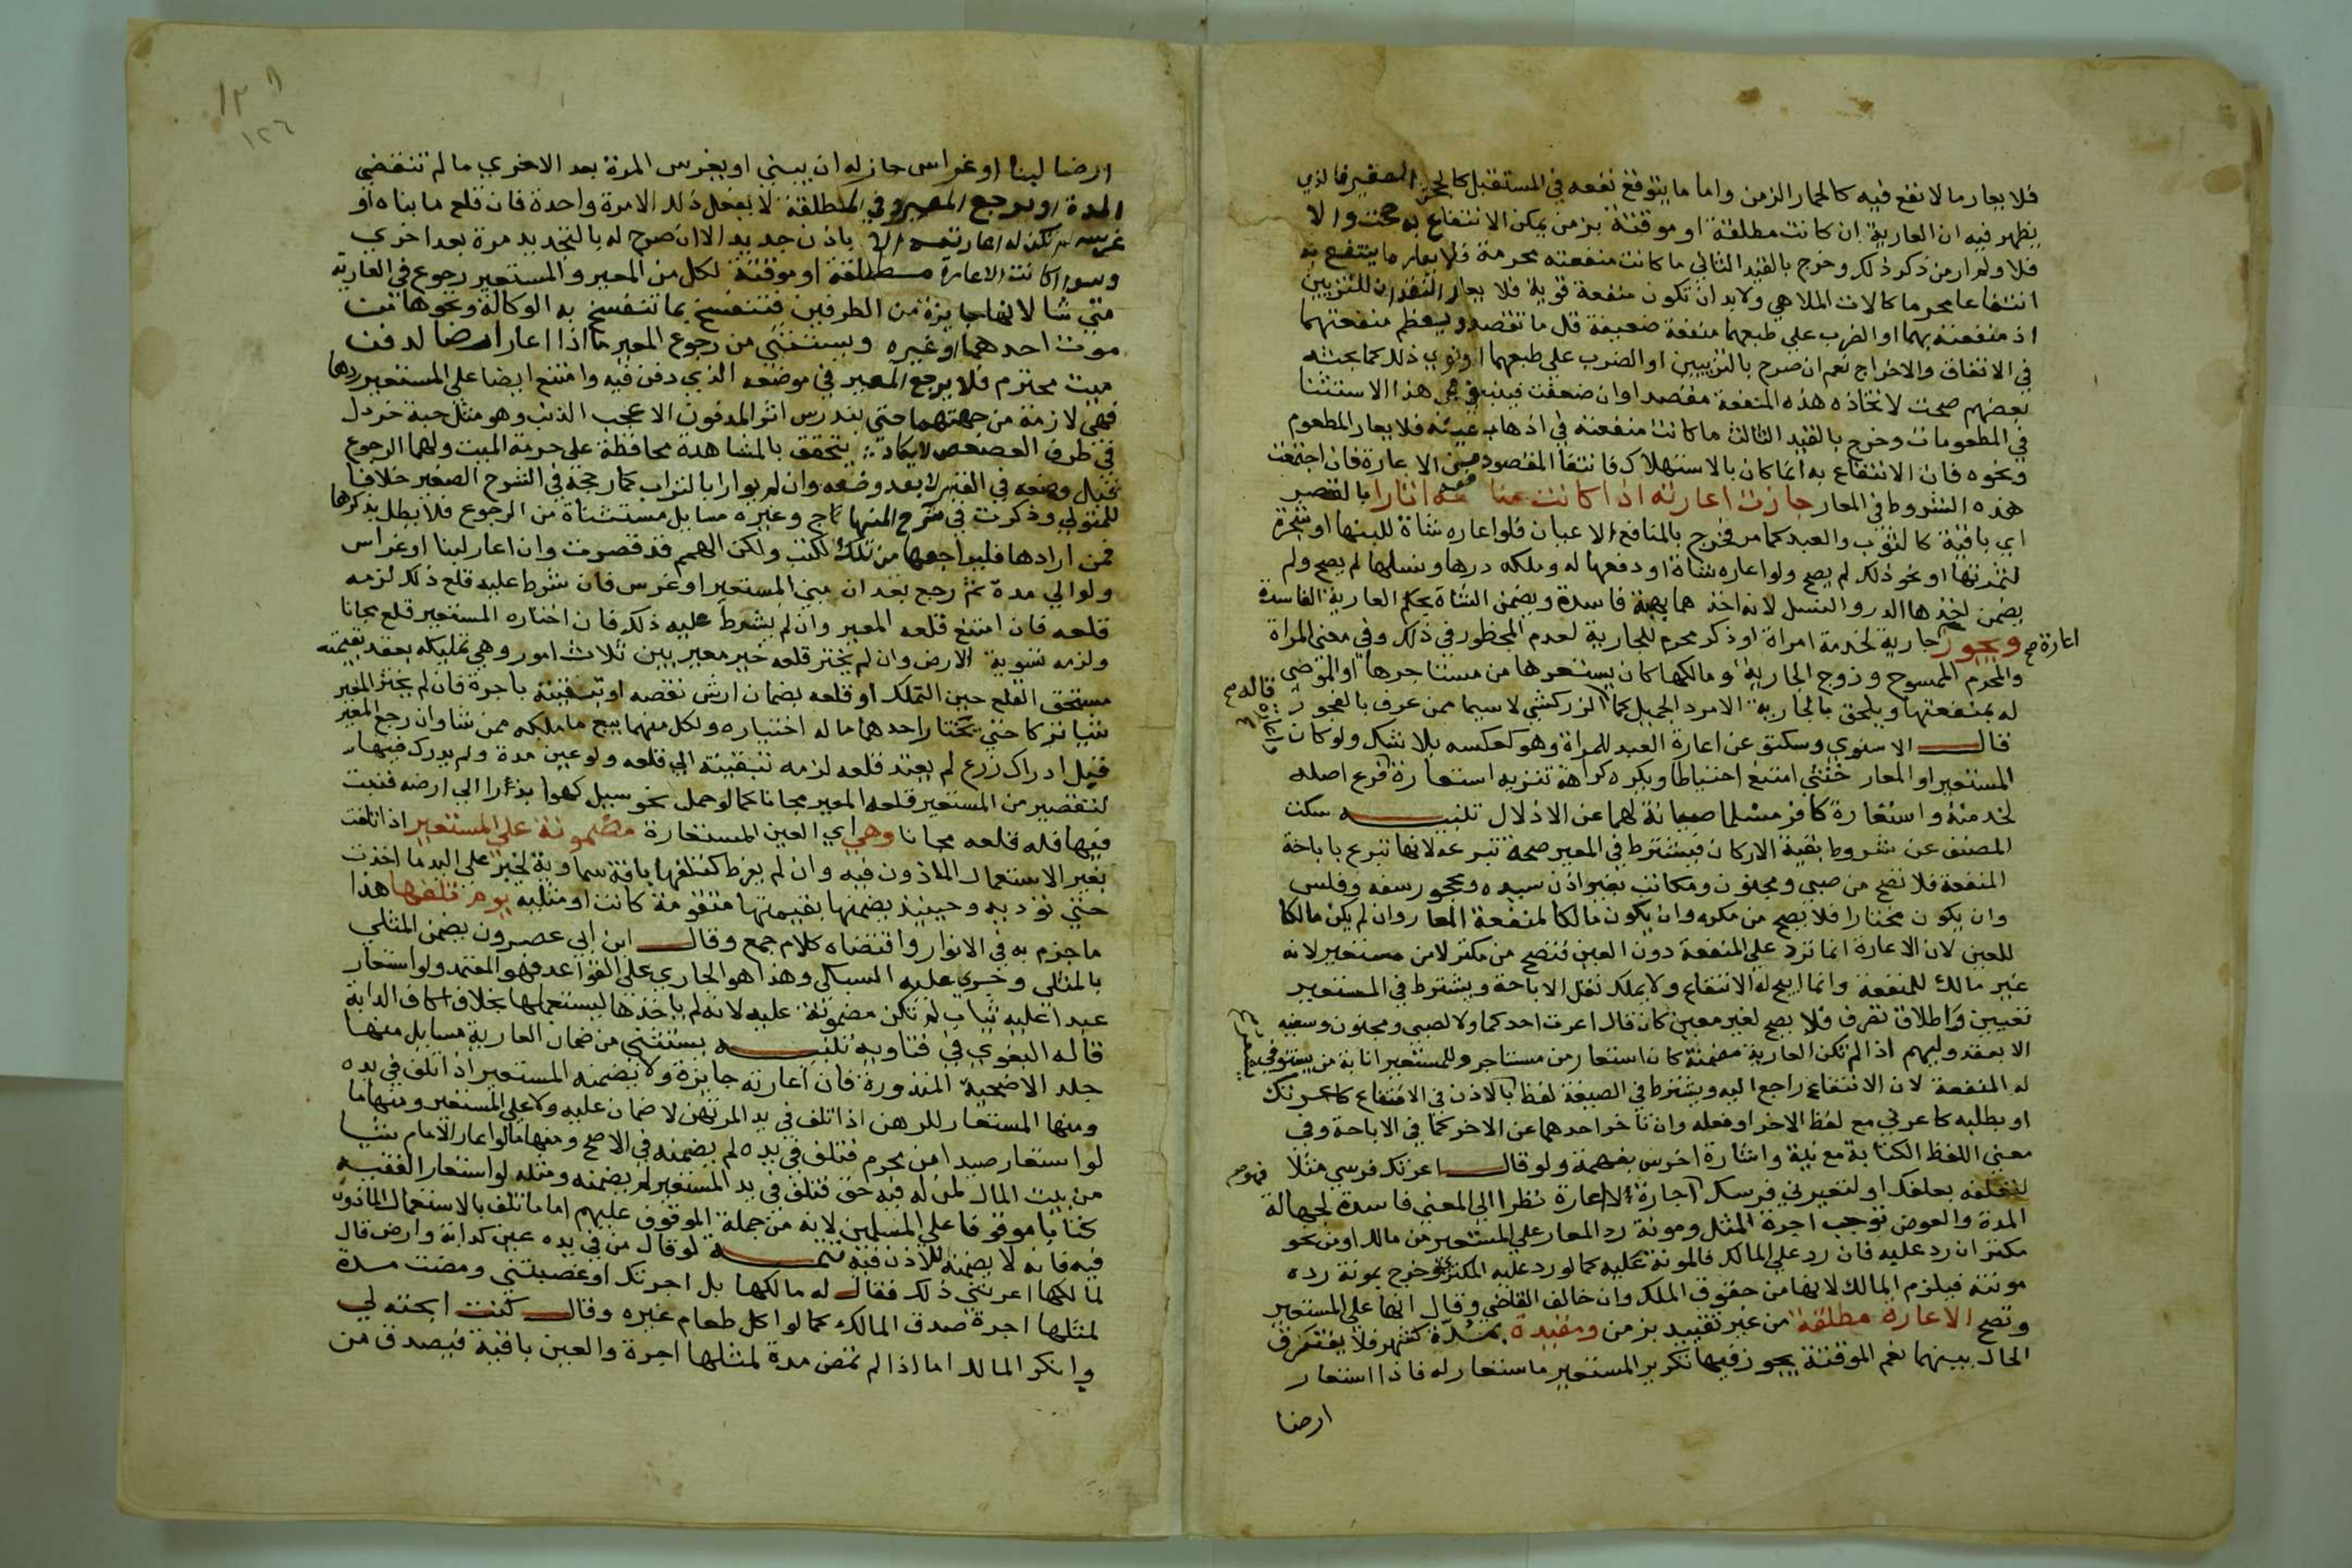 فلا يعار ما لا نفع فيه كالحمار الزمن واما ما يتوقع نفعه في المستقبل كالجحش الصغير فالذي
يظهر فيه ان العارية ان كانت مطلقة او موقتة بزمن يمكن الانتفاع به صحت والا
فلا ولم ار من ذكر ذلك وخرج بالقيد الثاني ما كانت منفعته محرمة فلا يعار ما ينتفع به
انتفاعا محرما كالات الملاهي ولابد ان تكون منفعة قوية فلا يعار النقدان للتزيين
اذ منفعته بهما او الضرب على طبعهما منفعة ضعيفة قل ما تقصد ويعظم منفعتهما
في الانفاق والاخراج نعم ان صرح بالتزيين او الضرب على طبعهما او نوي ذلك كما بحثه
بعضهم صحت لاتخاذه هذه المنفعة مقصدا وان ضعفت فينبغي مجي هذا الاستثنا
في المطعومات وخرج بالقيد الثالث ما كانت منفعته في اذهاب عينه فلا يعار المطعوم
ونحوه فان الانتفاع به انما كان بالاستهلاك فانتفا المقصود من الاعارة فان اجتمعت
هذه الشروط في المعار جازت اعارته اذا كانت منافعه اثارا بالقصر
اي باقية كالثوب والعبد كما مر فخرج بالمنافع الاعيان فلو اعاره شاة للبنها او شجرة
لثمرتها او نحو ذلك لم يصح ولو اعاره شاة او دفعها له وملكه درها ونسلها لم يصح ولم
يضمن اخذها الدر والنسل لانه اخذهما بهبة فاسدة ويضمن الشاة بحكم العارية الفاسدة
ويجوز اعارة صح جارية لخدمة امراة او ذكر محرم للجارية لعدم المحظور في ذلك وفي معنى المراة
والمحرم الممسوح وزوج الجارية ومالكها كان يستعيرها من مستاجرها او الموصي
له بمنفعتها ويلحق بالجارية الامرد الجميل كما قاله صح الزركشي لاسيما ممن عرف بالفجور
قال الاسنوي وسكتو عن اعارة العبد للمراة وهو كعكسه بلا شك ولو كان
المستعير او المعار خنثي امتنع احتياطا ويكره كراهة تنزيه استعارة فرع اصله
لخدمته واستعارة كافر مسلما صيانة لهما عن الاذلال تنبيه سكت
المصنف عن شروط بقية الاركان فيشترط في المعير صحة تبرعه لانها تبرع باباحة
المنفعة فلا تصح من صبي ومجنون ومكاتب بغير اذن سيده ومحجور سفه وفلس
وان يكون مختارا فلا يصح من مكره وان يكون مالكا لمنفعة المعار وان لم يكن مالكا
للعين لان الاعارة انما ترد على المنفعة دون العين فتصح من مكتر لا من مستعير لانه
غير مالك للمنفعة وانما ابيح له الانتفاع ولا يملك نقل الاباحة ويشترط في المستعير
تعيين واطلاق تصرف فلا يصح لغير معين كان قال اعرت احدكما ولا لصبي ومجنون وسفيه
الا بعقد وليهم اذا لم تكن العارية مضمنة كان استعار من مستاجر وللمستعير انابة من يستوفي
له المنفعة لان الانتفاع راجع اليه ويشترط في الصيغة لفظ بالاذن في الانتفاع كاعرتك
او بطلبه كاعرني مع لفظ الاخر او فعله وان تاخر احدهما عن الاخر كما في الاباحة وفي
معني اللفظ الكتابة مع نية واشارة اخرس مفهمة ولو قال اعرتك فرسي مثلا
لتعلفه بعلفك او لتعيرني فرسك فهو صح اجارة لا اعارة نظرا الي المعني فاسدة لجهالة
المدة والعوض توجب اجرة المثل ومونة رد المعار على المستعير من مالك او من نحو
مكتر ان رد عليه فان رد على المالك فالمونة عليه كما لو رد عليه المكتري وخرج بمونة رده
مونته فيلزم المالك لانها من حقوق الملك وان خالف القاضي وقال انها على المستعير
وتصح الاعارة مطلقة من غير تقييد بزمن ومقيدة بمدة كشهر فلا يفترق
الحال بينهما نعم الموقتة يجوز فيها تكرير المستعير ما استعار له فاذا استعار
ارضا
١٢٦
ارضا لبنا او غراس جاز له ان يبني او يغرس المرة بعد الاخري ما لم تنقضي
المدة او يرجع المعير وفي المطلقة لا يفعل ذلك الا مرة واحدة فان قلع ما بناه او
غرسه لم يكن له اعادته الا باذن جديد الا ان صرح له بالتجديد مرة بعد اخري
وسوا كانت الاعارة مطلقة او موقتة لكل من المعير والمستعير رجوع في العارية
متي شا لانها جايزة من الطرفين فتنفسخ بما تنفسخ به الوكالة ونحوها من
موت احدهما او غيره ويستثني من رجوع المعير ما اذا اعار ارضا لدفن
ميت محترم فلا يرجع المعير في موضعه الذي دفن فيه وامتنع ايضا على المستعير ردها
فهي لازمة من جهتهما حتي يندرس اثر المدفون الا عجب الذنب وهو مثل حبة خردل
في طرف العصعص لا يكاد يتحقق بالمشاهدة محافظة على حرمة الميت ولهما الرجوع
قبل وضعه في القبر لا بعد وضعه وان لم يوار بالتراب كما رجحه في الشرح الصغير خلافا
للمتولي وذكرت في شرح المنهاج وغيره مسايل مستثناة من الرجوع فلا نطل بذكرها
فمن ارادها فليراجعها من تلك الكتب ولكن الهمم قد قصرت وان اعار لبنا او غراس
ولو الي مدة ثم رجع بعد ان بني المستعير او غرس فان شرط عليه قلع ذلك لزمه
قلعه فان امتنع قلعه المعير وان لم يشرط عليه ذلك فان اختاره المستعير قلع مجانا
ولزمه تسوية الارض وان لم يختر قلعه خير معير بين ثلاث امور وهي تمليكه بعقد بقيمته
مستحق القلع حين التملك او قلعه بضمان ارش نقصه او تبقيته باجرة فان لم يختر المعير
شيا تركا حتي يختار احدهما ما له اختياره ولكل منهما بيع ما ملكه ممن شا وان رجع المعير
قبل ادراك زرع لم يعتد قلعه لزمه تبقيته الي قلعه ولو عين مدة ولم يدرك فيها
لتقصير من المستعير قلعه المعير مجانا كما لو حمل نحو سيل كهوا بذرا الي ارضه فنبت
فيها فله قلعه مجانا وهي اي العين المستعارة مضمونة على المستعير اذا تلفت
بغير الاستعمال الماذون فيه وان لم يفرط كتلفها بافة سماوية لخبر على اليد ما اخذت
حتي توديه وحينيذ يضمنها بقيمتها متقومة كانت او مثلية يوم تلفها هذا
ما جزم به في الانوار واقتضاه كلام جمع وقال ابن ابي عصرون يضمن المثلي
بالمثلي وجري عليه السبكي وهذا هو الجاري على القواعد فهو المعتمد ولو استعار
عبدا عليه ثياب لم تكن مضمونة عليه لانه لم ياخذها ليستعملها بخلاف اكاف الدابة
قاله البغوي في فتاويه تنبيه يستثني من ضمان العارية مسايل منها
جلد الاضحية المنذورة فان اعارته جايزة ولا يضمنه المستعير اذا تلف في يده
ومنها المستعار للرهن اذا تلف في يد المرتهن لا ضمان عليه ولا على المستعير ومنها ما
لو استعار صيدا من محرم فتلف في يده لم يضمنه في الاصح ومنها ما لو اعار الامام شيا
من بيت المال لمن له فيه حق فتلف في يد المستعير لم يضمنه ومثله لو استعار الفقيه
كتابا موقوفا على المسلمين لانه من جملة الموقوف عليهم اما ما تلف بالاستعمال الماذون
فيه فانه لا يضمنه للاذن فيه تتمه لو قال من في يده عين كدابة وارض قال
لمالكها اعرتني ذلك فقال له مالكها بل اجرتك او غصبتني ومضت مدة
لمثلها اجرة صدق المالك كما لو اكل طعام غيره وقال كنت ابحته لي
وانكر المالك اما اذا لم تمض مدة لمثلها اجرة والعين باقية فيصدق من